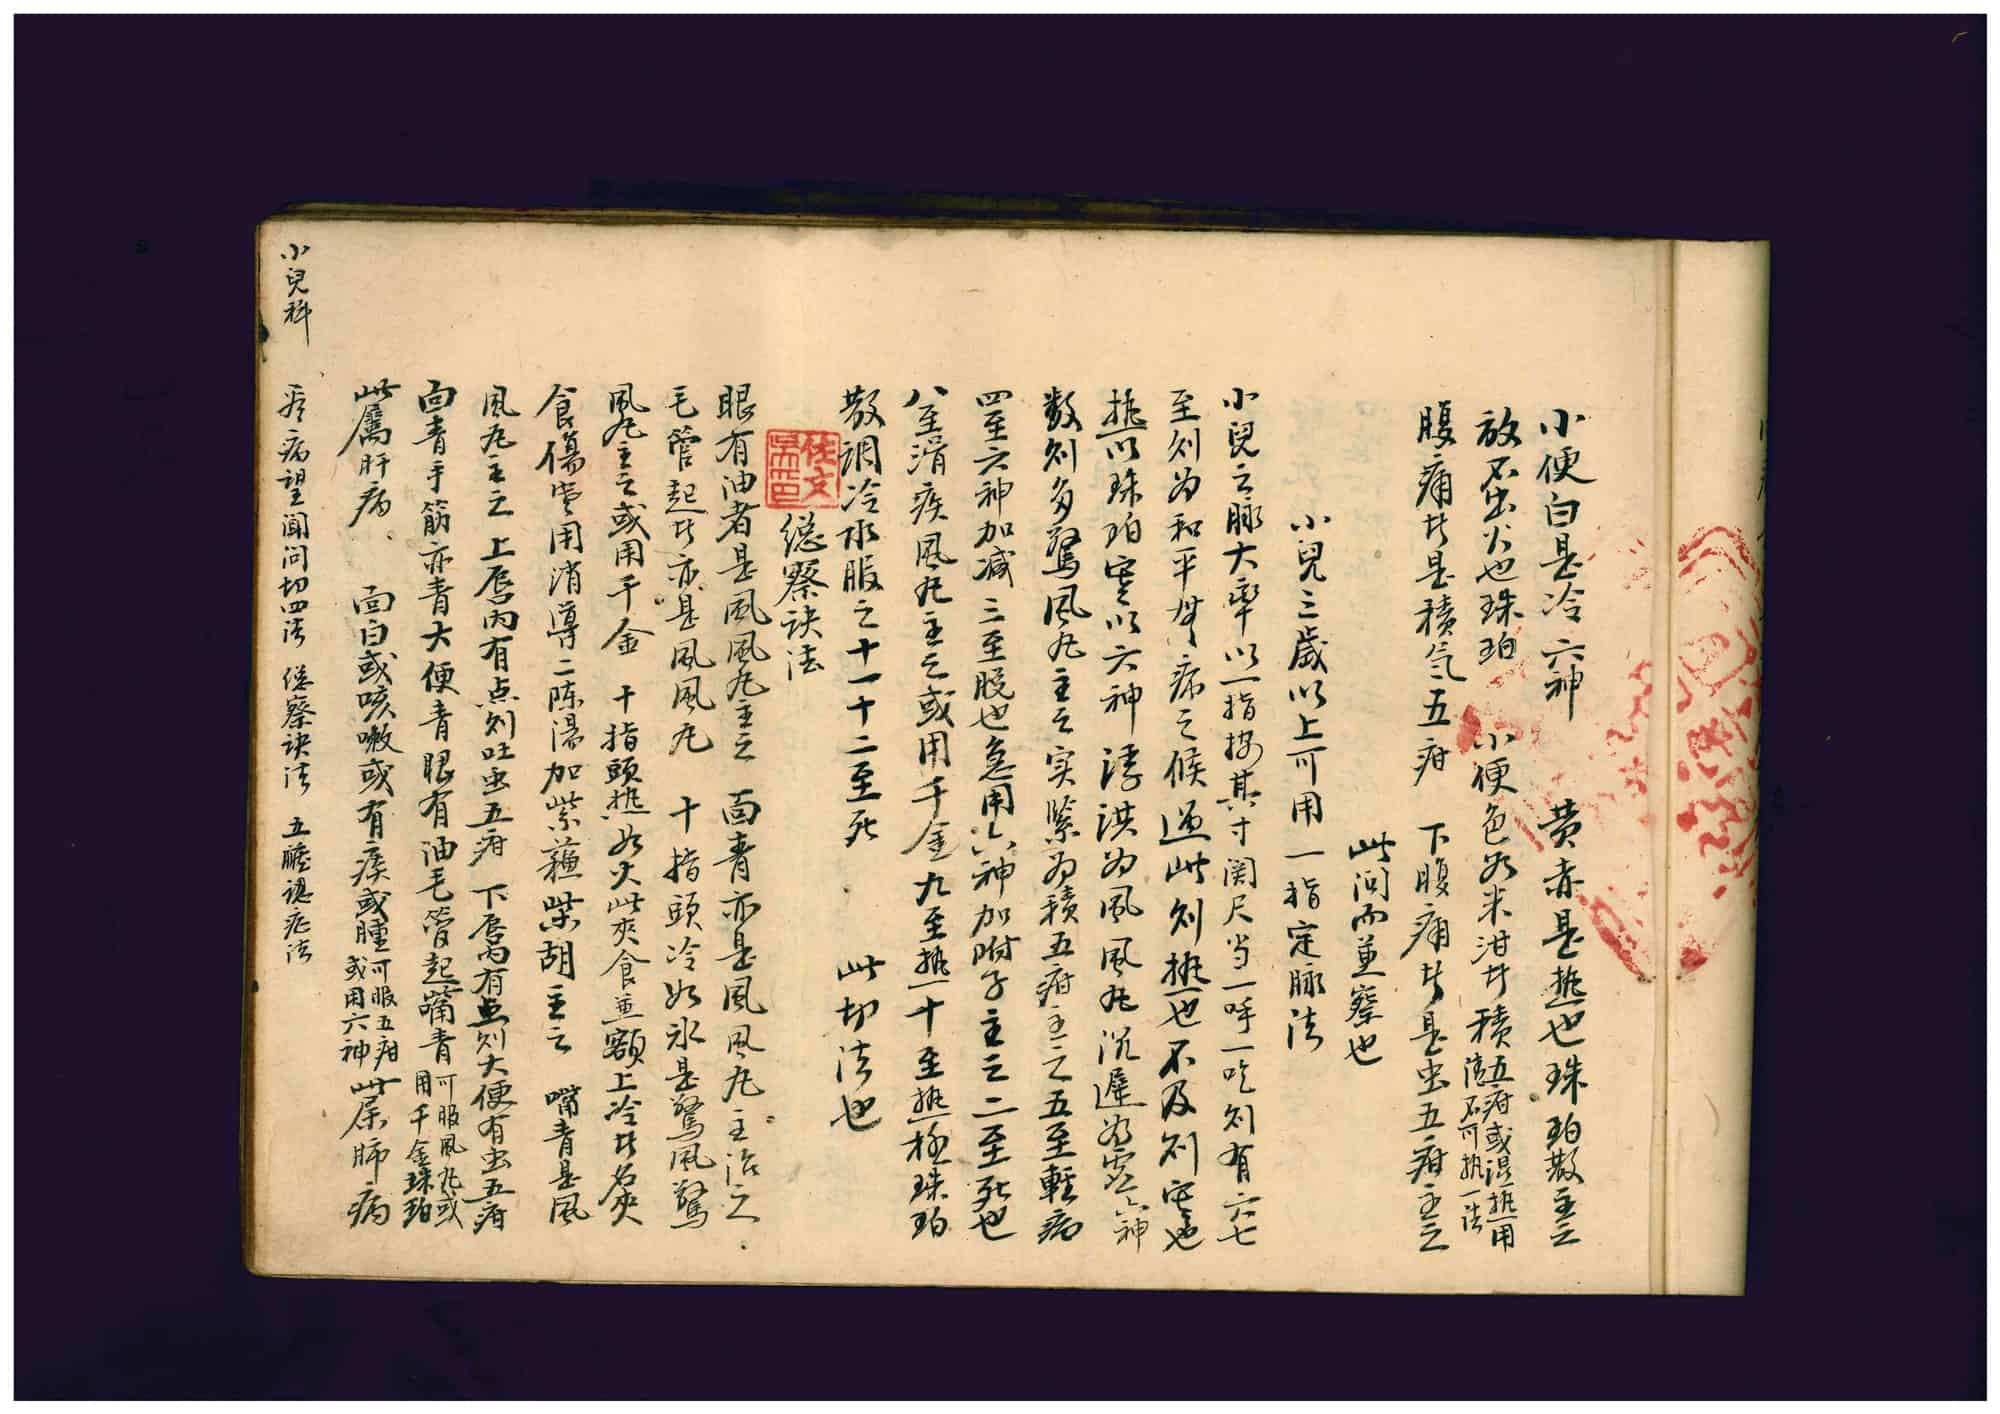 小便白是冷六神 黄赤是热也珠珀散主之
放不出火也珠珀 小便色如米泔者積五疳或湿热用
法不可执一法
腹痛者是積气五疳 下腹痛者是虫五疳主之
此问而兼察也
小兒三歲以上可用一指定脉法
小兒之脉大率以一指按其寸関尺当一呼一吸则有六七
至则为和平無病之候过此则热也不及则寒也
热以珠珀寒以六神 浮洪为風風丸沉遲为虚六神
数则多驚風丸主之实緊为積五疳主之五至輕病
四至六神加减三至脱也急用六神加附子主之二至死也
八至滑疾風丸主之或用千金九至热十至热極珠珀
散调冷水服之十一十二至死 此切法也
总察訣法
眼有油者是風風丸主之 面青亦是風風丸主治之
毛管起者亦是風風丸 十指頭冷如氷是驚風驚
風丸主之或用千金 十指頭热如火此夾食兼額上冷者名夾
食傷寒用消導二陈湯加紫蘇柴胡主之 嘴青是風
風丸主之 上唇内有点则吐虫五疳 下唇内有点则大便有虫五疳
面青手筋亦青大便青眼有油毛管起嘴青可服風丸或
用千金珠珀
此属肝病 面白或咳嗽或有痰或腫可服五疳
或用六神 此属肺病
小兒科 看病望聞问切四法 总察訣法 五臟認症法
佐文